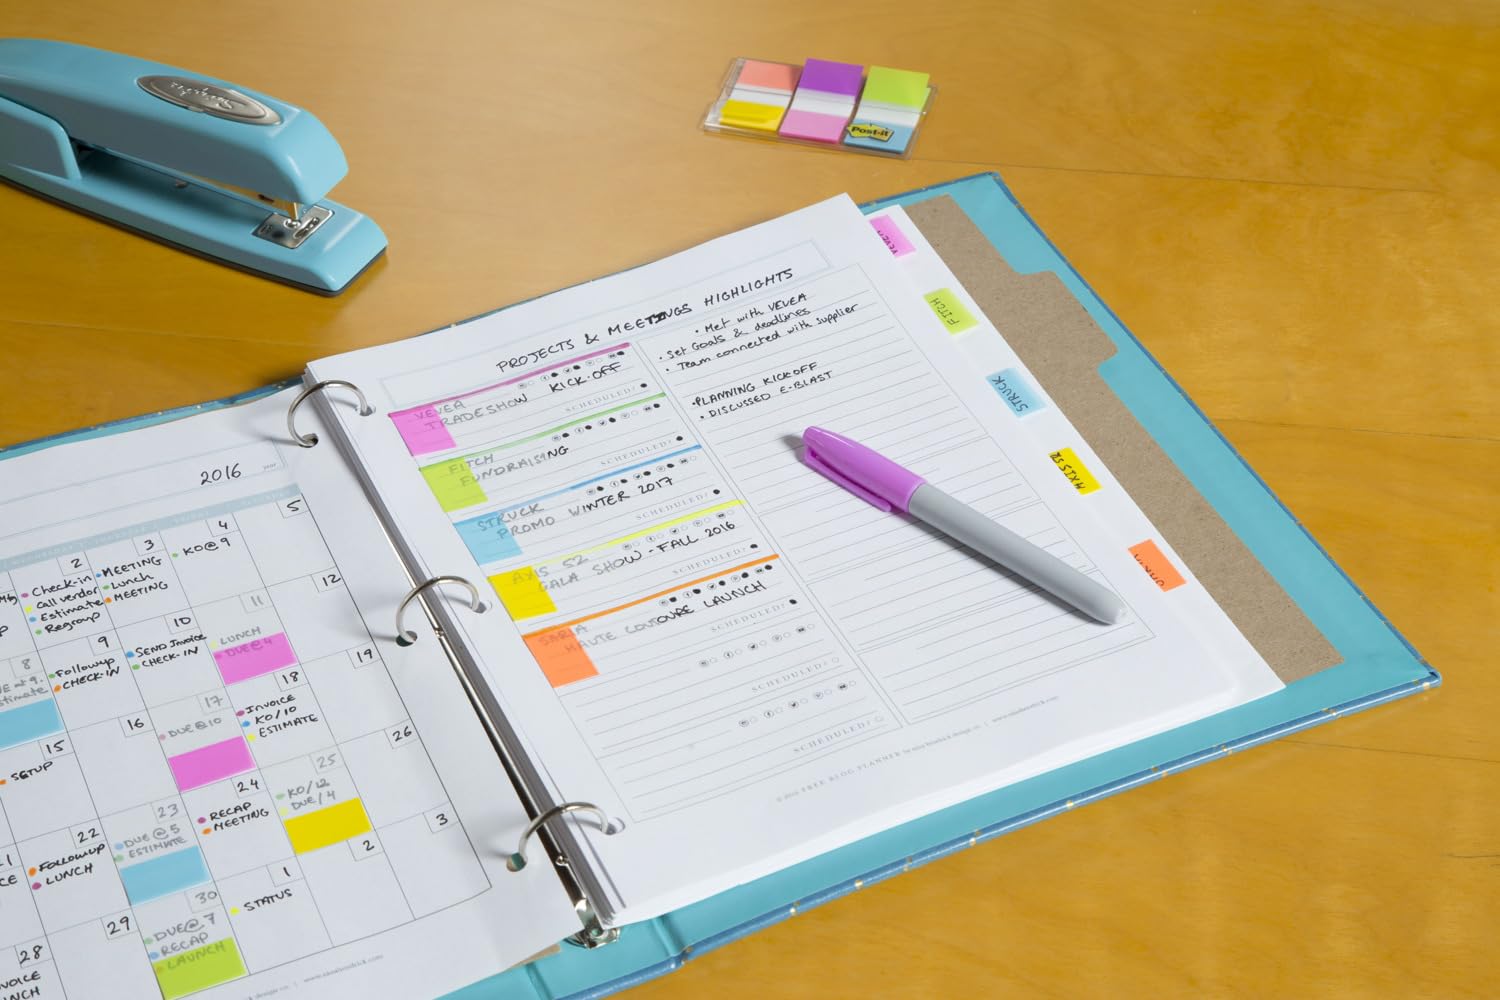 Swingline
Post-it
2016
year
2
Check-in
Call vendor
Estimate
Regroup
3
MEETING
Lunch
MEETING
4
KO@9
5
8
9
Followup
CHECK-IN
10
SEND Invoice
CHECK-IN
11
LUNCH
DUE@4
12
15
SETUP
16
17
DUE@10
18
INVOICE
KO/10
ESTIMATE
19
22
FOLLOWUP
LUNCH
23
DUE@5
ESTIMATE
24
RECAP
MEETING
25
KO/12
DUE/4
26
28
29
30
DUE@7
RECAP
LAUNCH
1
STATUS
2
3
PROJECTS & MEETINGS HIGHLIGHTS
VEVEA
TRADESHOW KICK-OFF
SCHEDULED?
FITCH
FUNDRAISING
SCHEDULED?
STRUCK
PROMO WINTER 2017
SCHEDULED?
AXIS 52
GALA SHOW - FALL 2016
SCHEDULED?
HAUTE COUTOURE LAUNCH
SCHEDULED?
SCHEDULED?
SCHEDULED?
• Met with VEVEA
• Set Goals & deadlines
• Team connected with supplier
•PLANNING KICKOFF
• DISCUSSED E-BLAST
FREE BLOG PLANNER
VEVEA
FITCH
STRUCK
AXIS 52